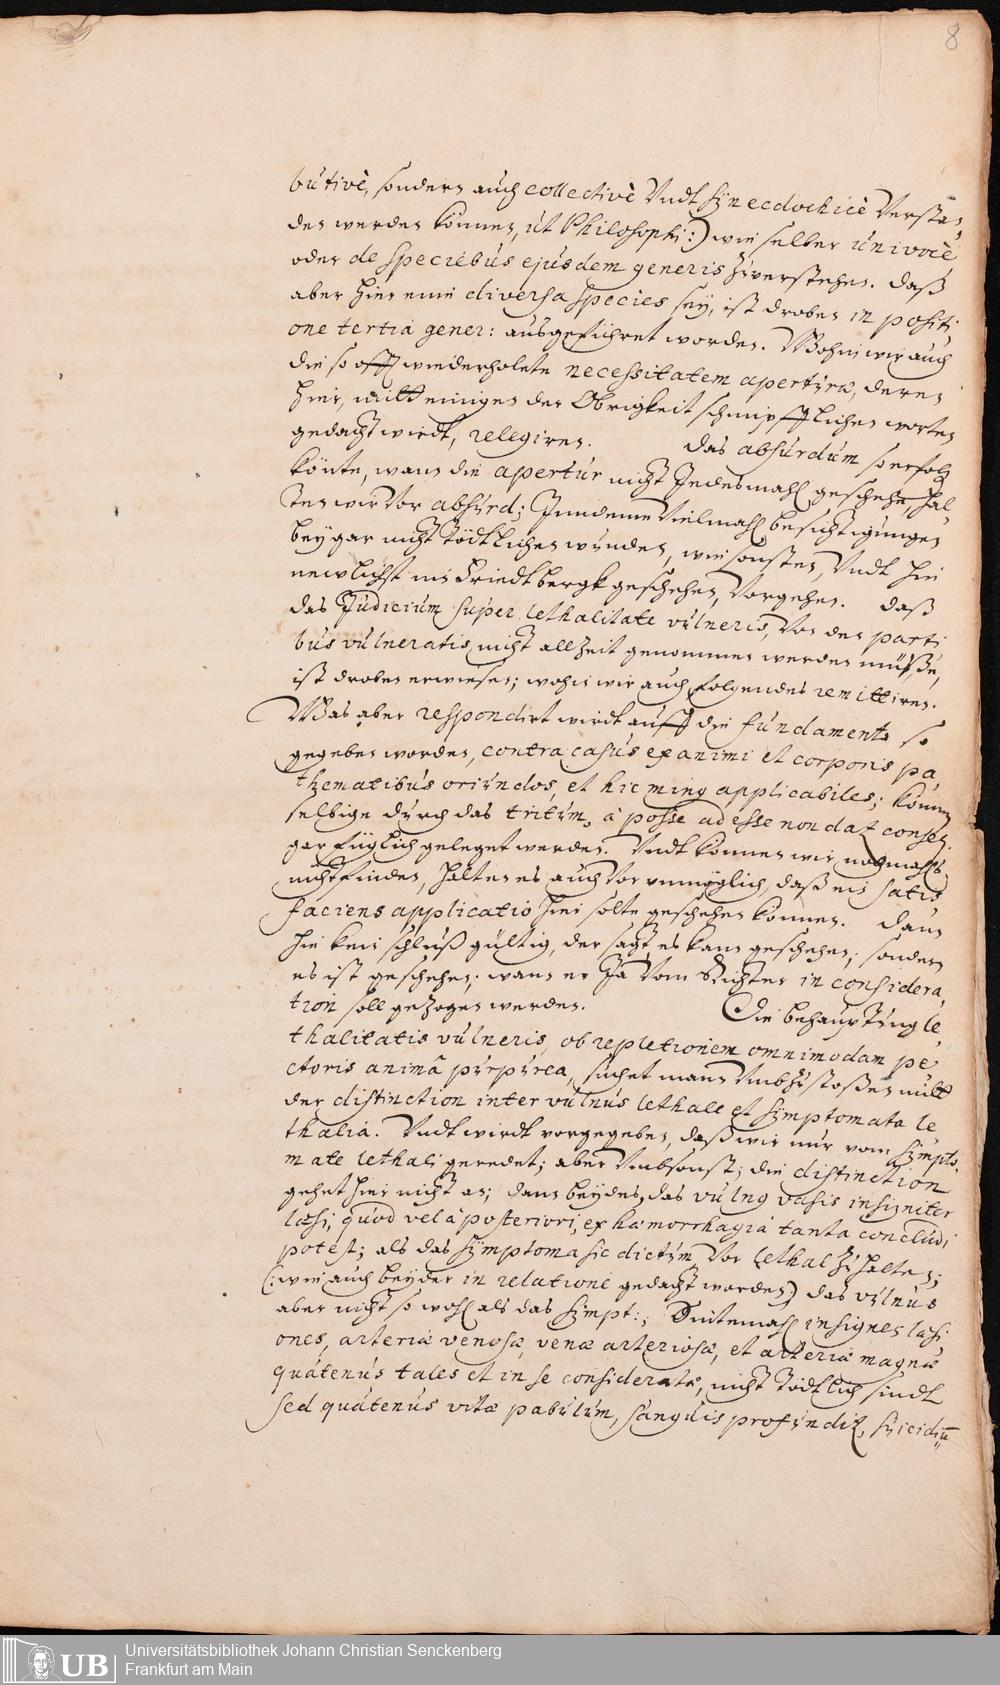 8
butivè, sondern auch collectivè Vndt Synecdochicè Verstan
den werden können, ut Philosophi:) wie selber univocè
oder de speciebus ejusdem generis zuverstehen. Daß
aber hier eine diversa species sey, ist droben in positi
one tertia gener: ausgeführet worden. Wohin wir auch
die so offt wiederholete necessitatem aperturæ, deren
hier, mitt einigen der Obrigkeit schimpfflichen worten
gedacht wirdt, relegiren. Das absurdum so erfolg
könte, wann die apertur nicht Jedesmahl geschehe, hal
ten wir Vor absurd; Inndeme Vielmahl besichtigungen
bey gar nicht Tödtlichen wunden, wie sonsten, Vndt hie
newlichst in Friedtbergk geschehen, Vorgehen. Daß
das Judicium super lethalitate vulneris, Von den parti
bus vulneratis nicht allzeit genommen werden müße,
ist droben erwiesen; wohin wir auch folgendes remittiren.
Was aber respondirt wirdt auff die fundamenta so
gegeben worden, contra casus ex animi et corporis pa
thematibus oriundos, et hic minq applicabiles; können
selbige durch das tritum, à posse ad esse non dat conseq
gar füglich geleget werden. Vndt können wir nochmahls
nicht finden, halten es auch Vor vnmöglich, daß ein satis
faciens applicatio hier solte geschehen können. Dann
hie kein schluß gültig, der sagt, es kann geschehen; sondern
es ist geschehen; wann er Ja Vom Richter in considera
tion soll gezogen werden. Die behauptung le
thalitatis vulneris, ob repletionem omnimodam pe
ctoris animâ purpurea, suchet mann Vmbzustoßen mitt
der distinction inter vulnus lethale et symptomata le
thalia. Vndt wirdt vorgegeben, daß wir nur vom sympto
mate lethali geredet; aber Vmbsonst; die distinction
gehet hier nicht an; dann beydes, das vulnq vasis insigniter
læsi, quod vel à posteriori, ex hæmorrhagia tanta concludi
potest; als das symptoma sic dictum Vor lethal zu halten;
(: wie auch beyder in relatione gedacht worden) das vulnus
aber nicht so wohl als das sympt:; Sintemahl insignes læsi
ones, arteriæ venosæ, venæ arteriosæ, et arteriæ magnæ
quatenus tales et in se consideratæ, nicht tödtlich sindt
sed quatenus vitæ pabulum, sanguis profundit, suicidiu
UB Universitätsbibliothek Johann Christian Senckenberg
Frankfurt am Main